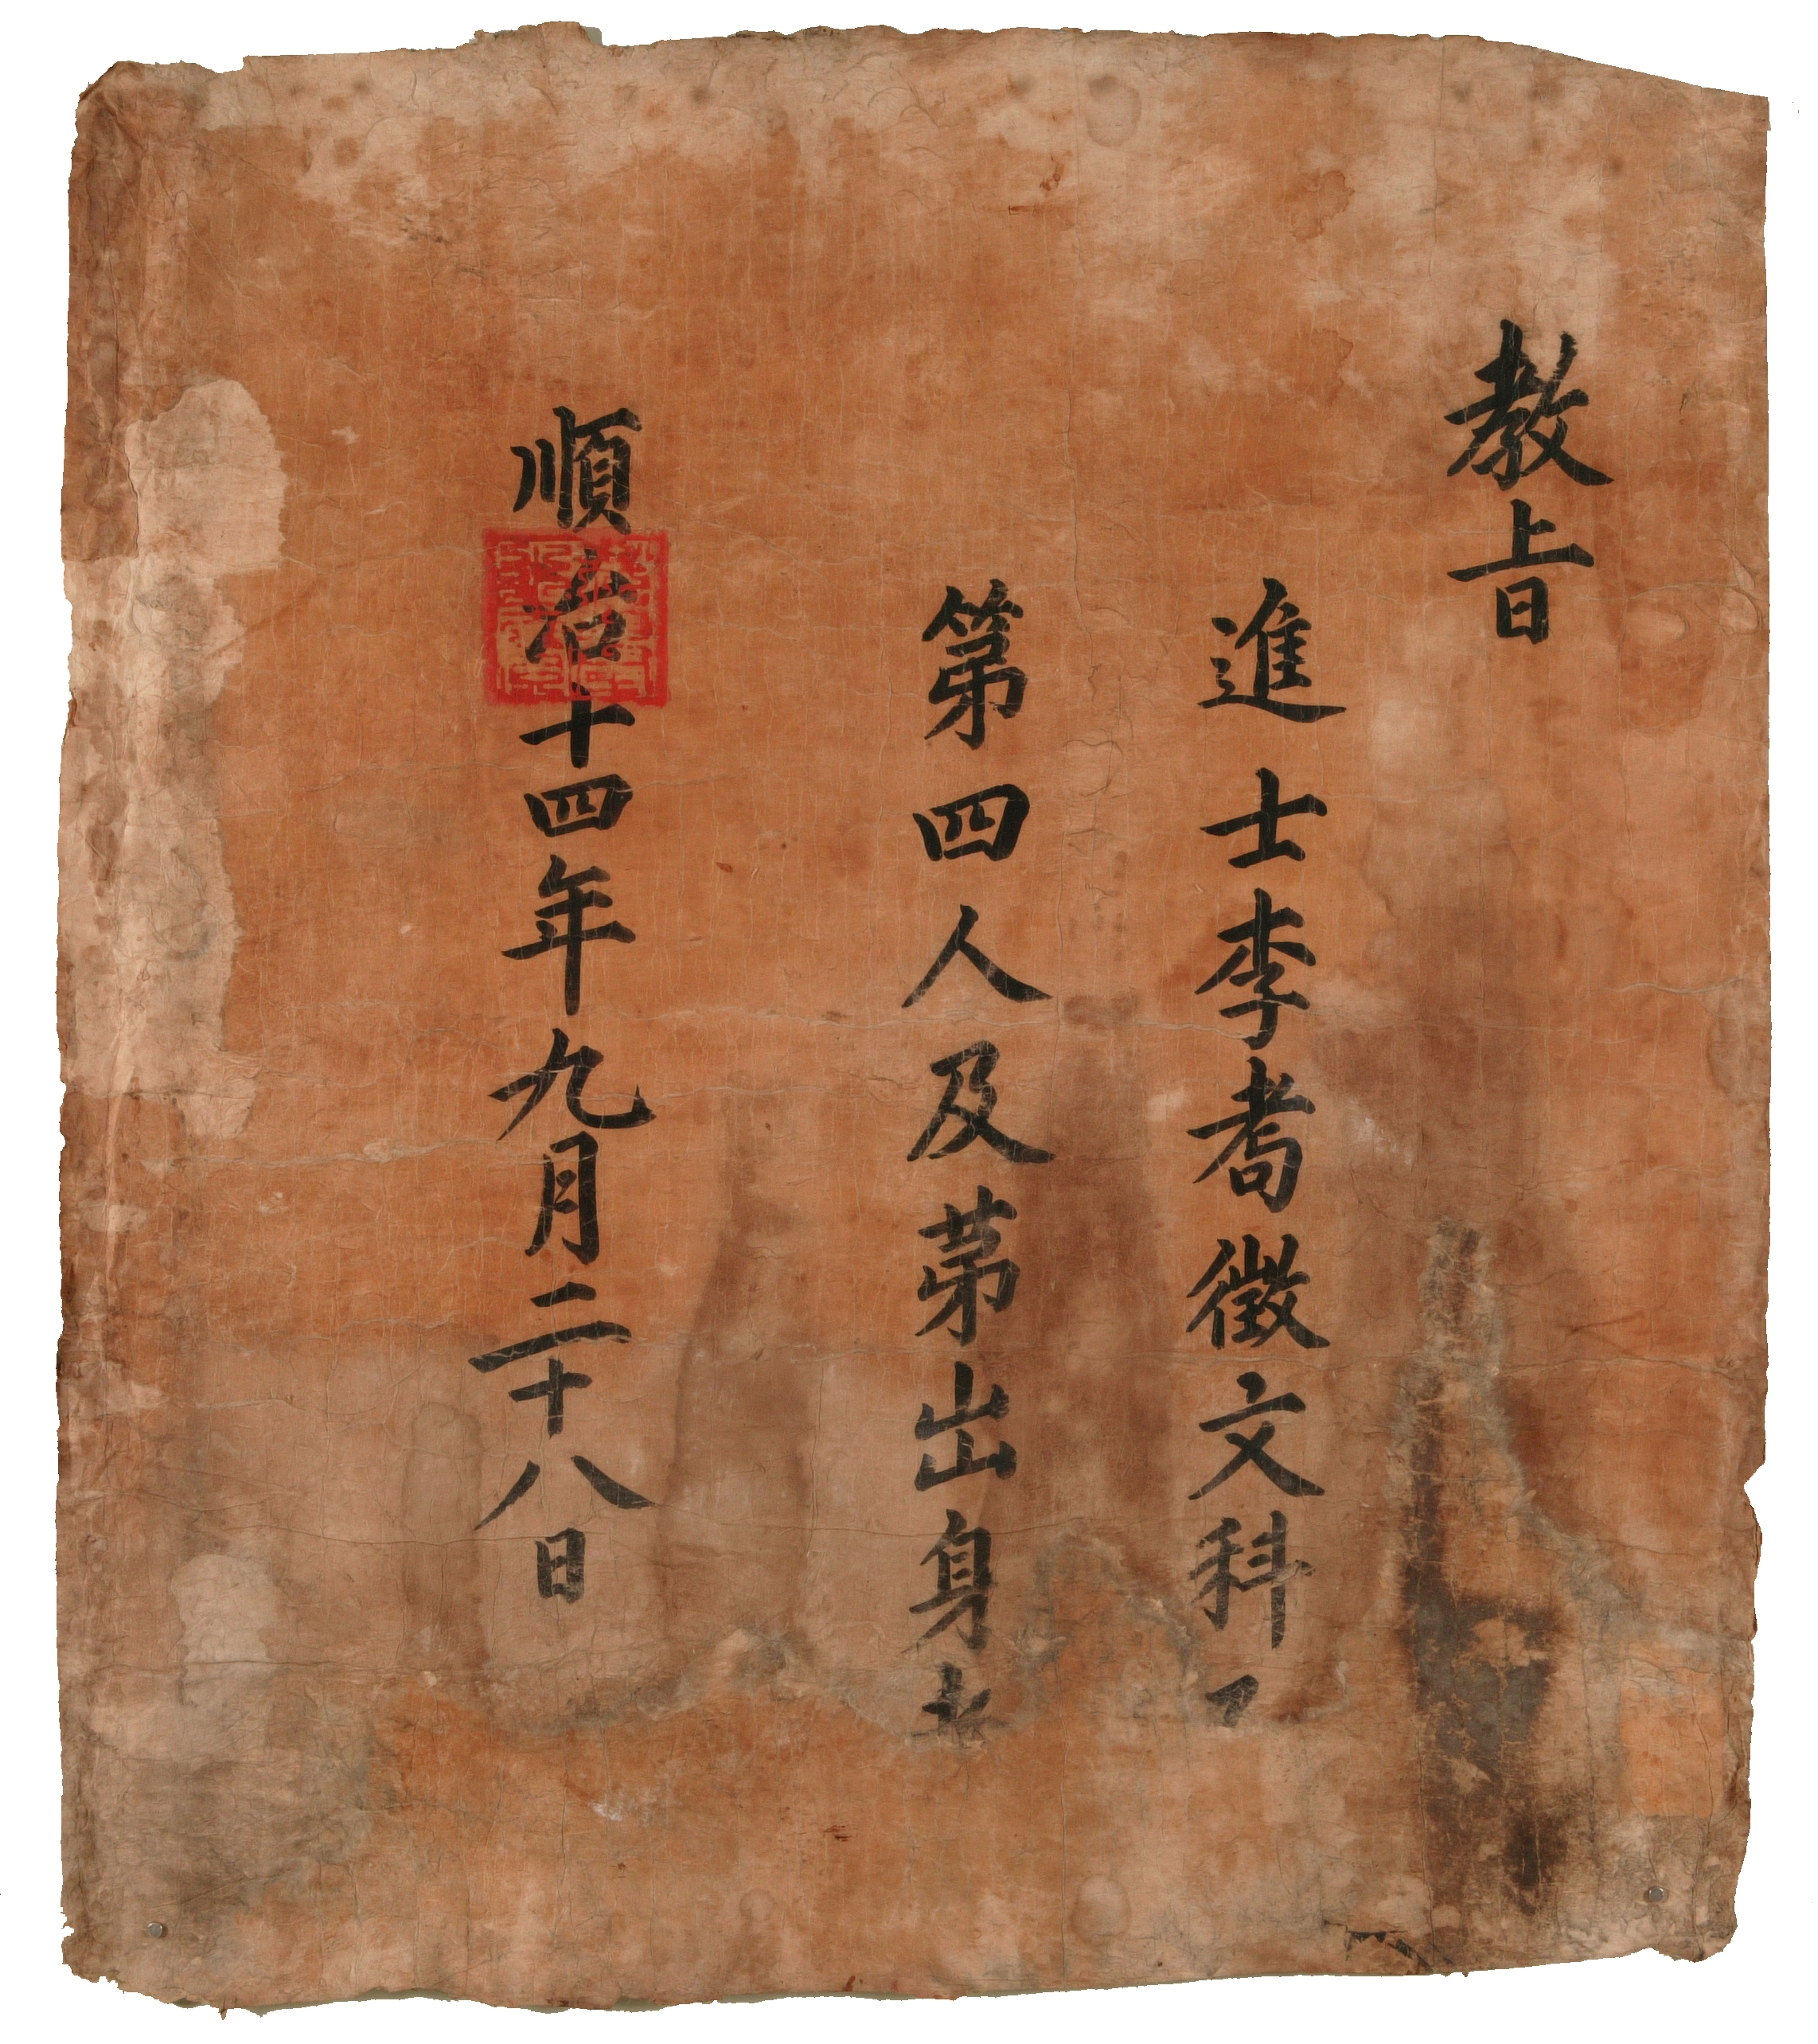 教旨
進士李耉徵文科
第四人及苐出身者
順治十四年九月二十八日